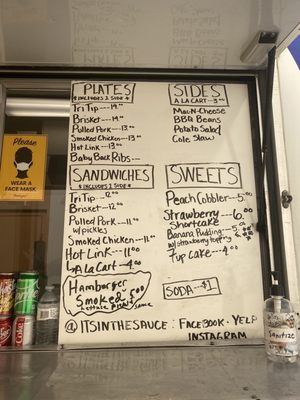 PLATES
*INCLUDES 2 SIDE*
Tri Tip---19.00
Brisket---19.00
Pulled Pork---13.00
Smoked Chicken---13.00
Hot Link---13.00
Baby Back Ribs---
SIDES
A LA CART---3.00
Mac-N-Cheese
BBQ Beans
Potato Salad
Cole Slaw
SANDWICHES
*INCLUDES 1 SIDE*
Tri Tip---12.00
Brisket---12.00
Pulled Pork---11.00
w/pickles
Smoked Chicken---11.00
Hot Link---11.00
LA La CART---4.00
Hamburger
Smoked
5.00
Lettuce
sauce
SWEETS
Peach Cobbler-5.00
Strawberry-6.00
Shortcake
Banana Pudding-5.00
w/strawberry topping
7up Cake---4.00
SODA-$1
@ITSINTHESAUCE: FACEBOOK. YELP
INSTAGRAM
Please
WEAR A
FACE MASK
Coke
Sanitize